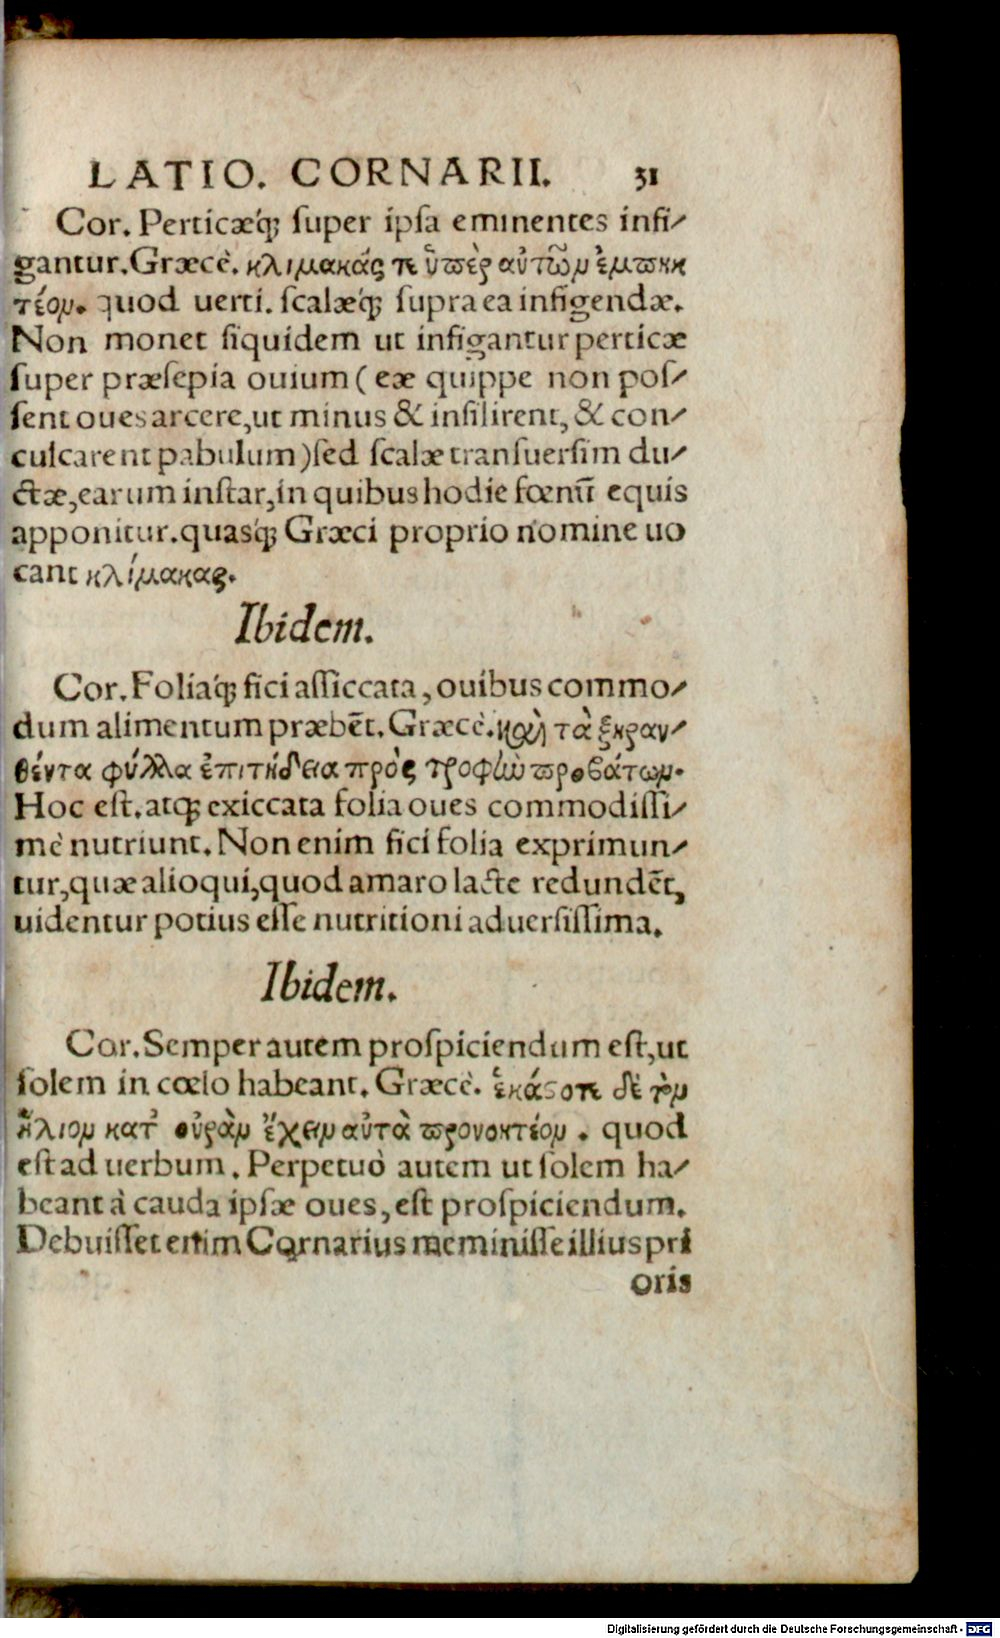 LATIO. CORNARII. 31
Cor. Perticæq́; super ipsa eminentes infi-
gantur. Græcè. κλιμακάς τε ὑπὲρ αὐτῶν ἐμπηκ
τέον. quod uerti. scalæq́; supra ea infigendæ.
Non monet siquidem ut infigantur perticæ
super præsepia ouium (eæ quippe non pos-
sent oues arcere, ut minus & insilirent, & con-
culcarent pabulum) sed scalæ transuersim du-
ctæ, earum instar, in quibus hodie fœnū equis
apponitur. quasq́; Græci proprio nomine uo
cant κλίμακας.
Ibidem.
Cor. Foliaq́; fici assiccata, ouibus commo-
dum alimentum præbēt. Græcè. καὶ τὰ ξηραν-
θέντα φύλλα ἐπιτήδεια πρὸς τροφὴν προβάτων.
Hoc est. atq; exiccata folia oues commodissi-
mè nutriunt. Non enim fici folia exprimun-
tur, quæ alioqui, quod amaro lacte redundēt,
uidentur potius esse nutritioni aduersissima.
Ibidem.
Cor. Semper autem prospiciendum est, ut
solem in cœlo habeant. Græcè. ἑκάστοτε δὲ τὸν
ἥλιον κατ᾽ οὐρὰν ἔχειν αὐτὰ προνοητέον. quod
est ad uerbum. Perpetuò autem ut solem ha-
beant à cauda ipsæ oues, est prospiciendum.
Debuisset enim Cornarius meminisse illius pri
oris
Digitalisierung gefördert durch die Deutsche Forschungsgemeinschaft - DFG